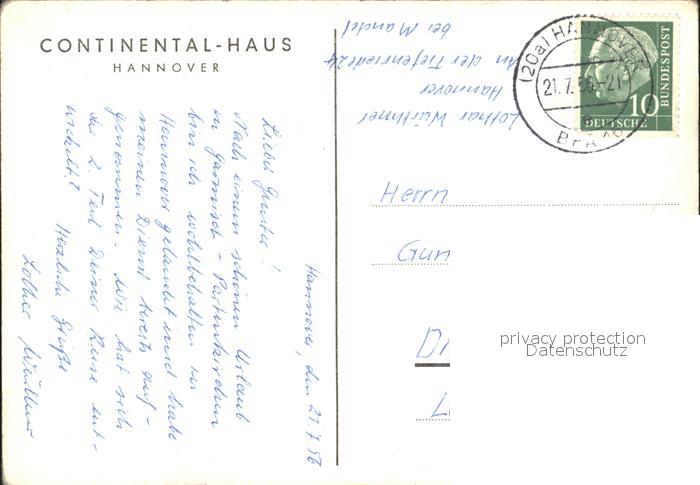 CONTINENTAL-HAUS
HANNOVER
Hannover, den 21.7.56
Lieber Gunter!
Nach einem schönen Urlaub
in Garmisch-Partenkirchen
bin ich wohlbehalten in
Hannover gelandet und habe
meinen Dienst bereits auf-
genommen. Wie hat sich
der 2. Teil Deiner Reise ent-
wickelt?
Herzliche Grüße
Lothar Würthner
Lothar Würthner
Hannover
An der Tiefenriede 24
bei Mandel
(20a) HANNOVER
21.7.56-21
BPA
10
DEUTSCHE
BUNDESPOST
Herrn
Gun
privacy protection
Datenschutz